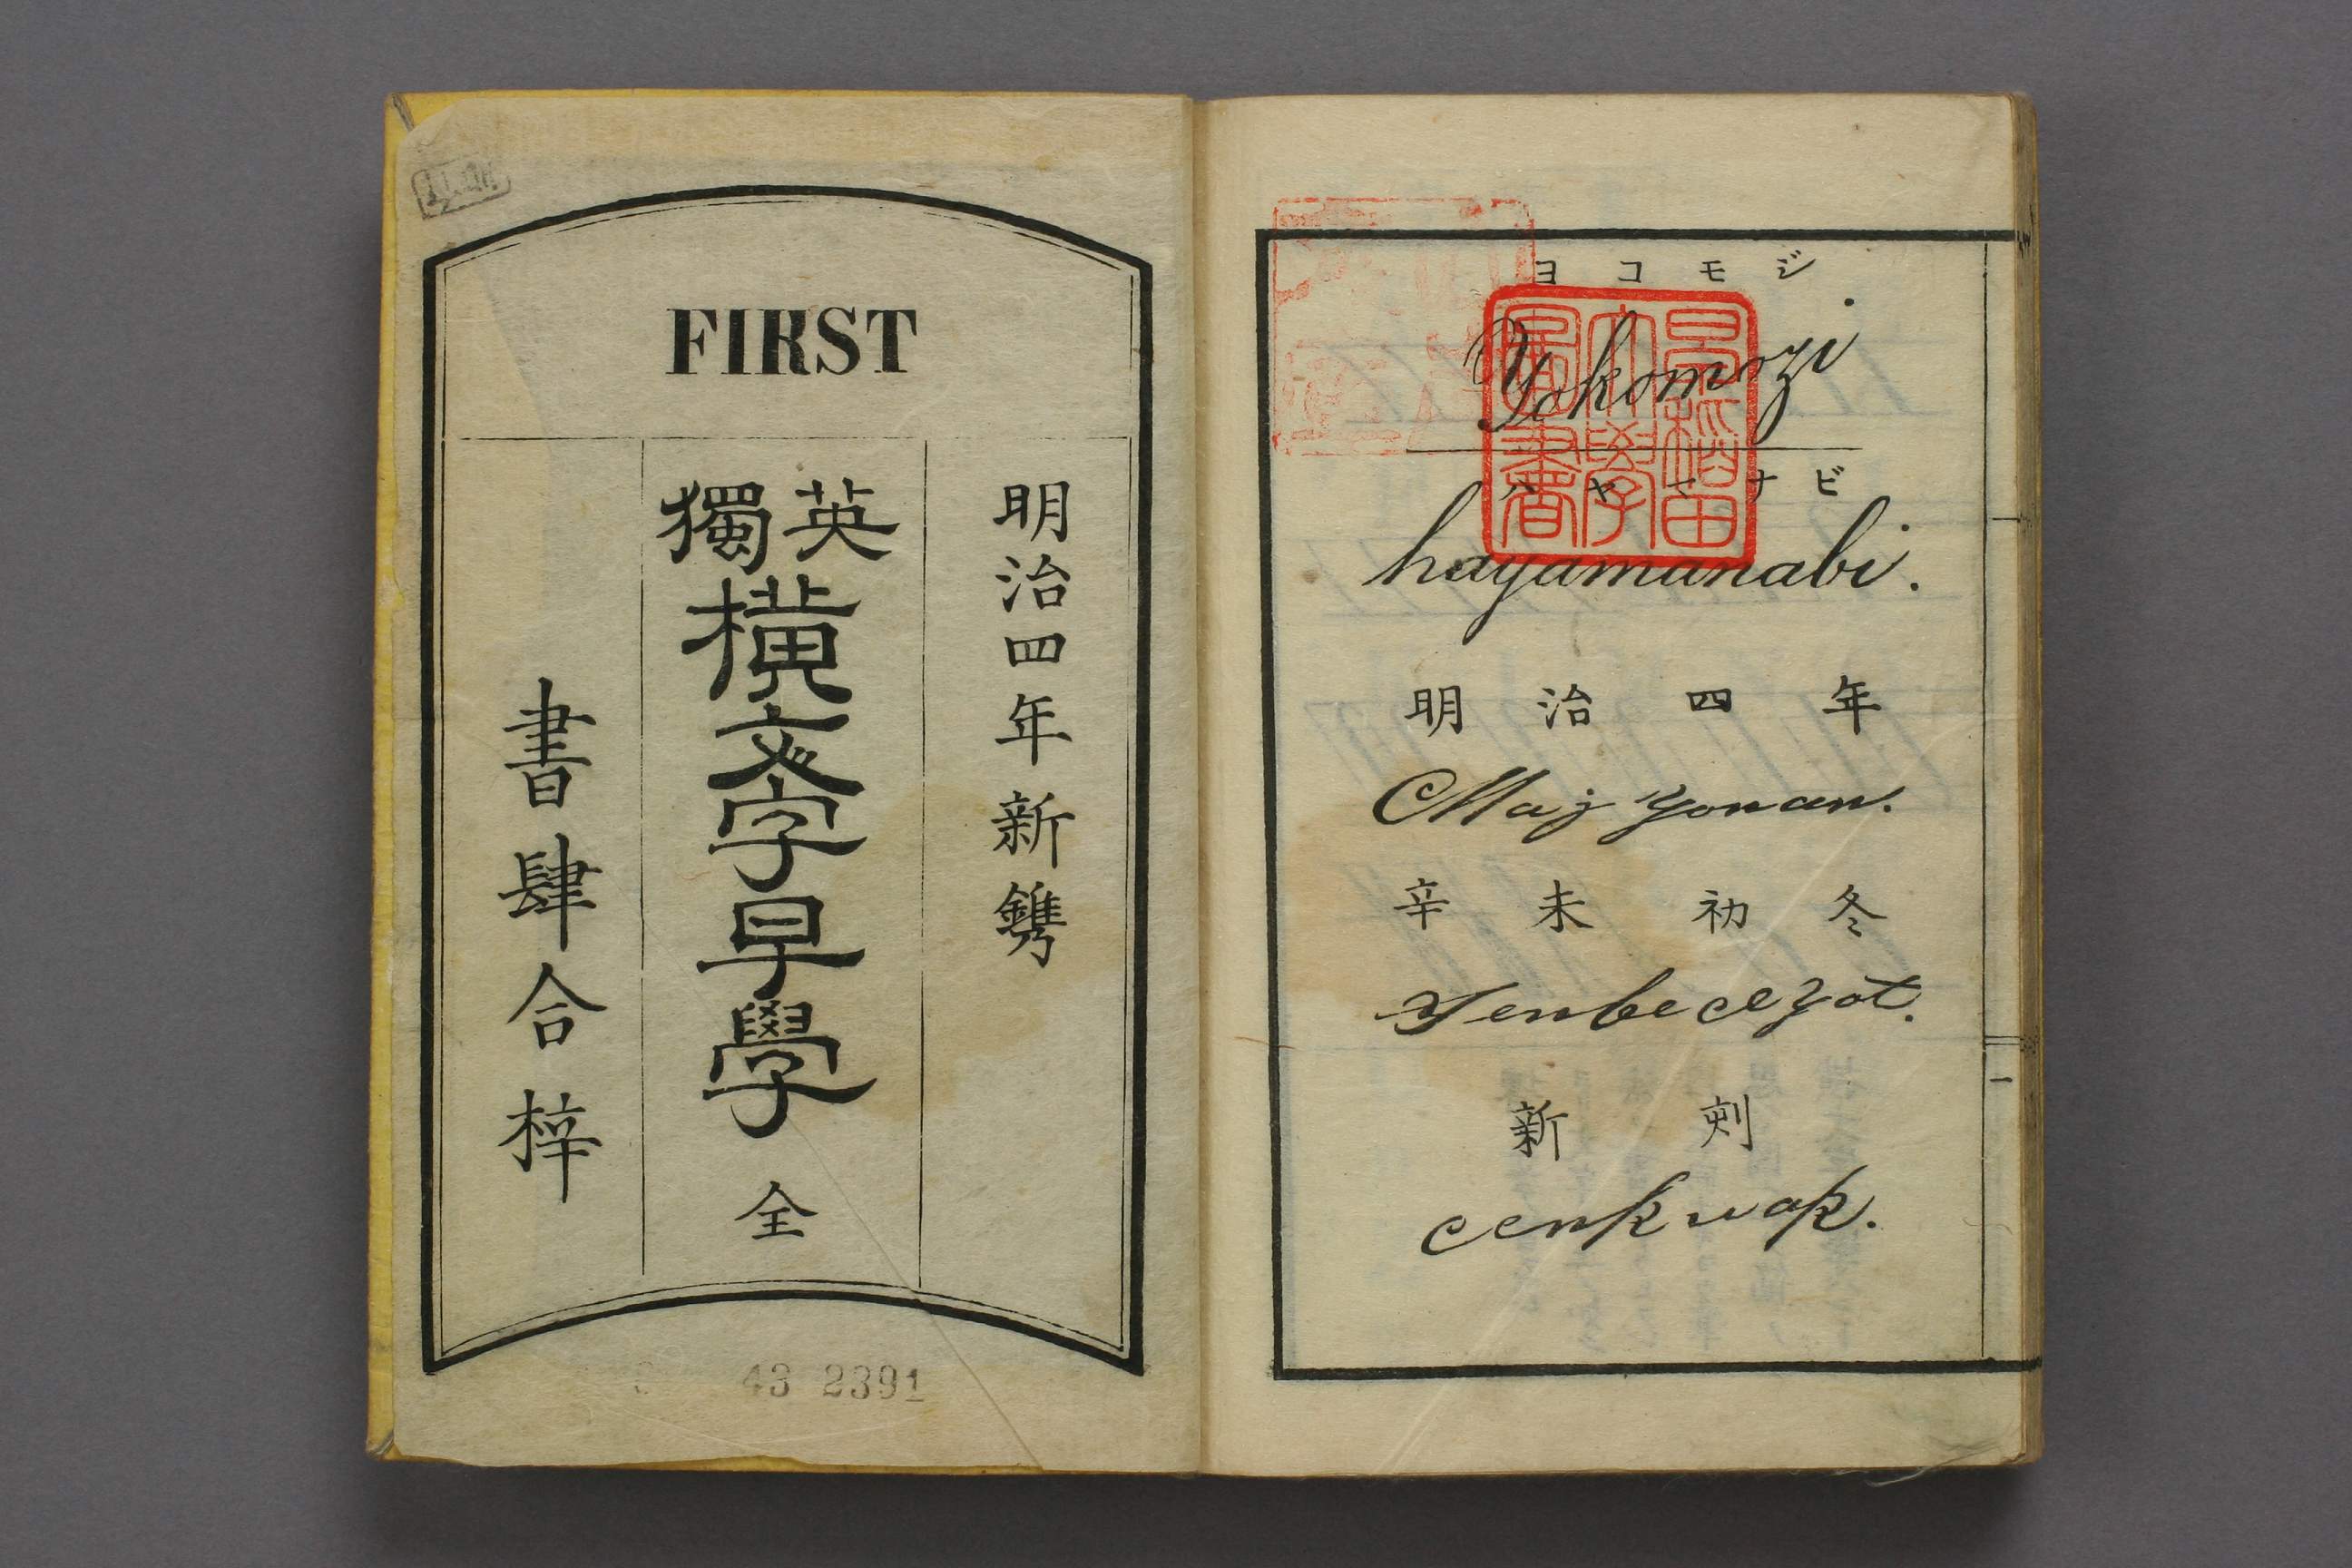 FIRST
明治四年新鐫
英獨
横文字早學 全
書肆合梓
43 2391
ヨコモジ
Yokomozi
ハヤマナビ
hayamanabi.
早稲田大學圖書
明治四年
Maj yonan.
辛未初冬
新刻